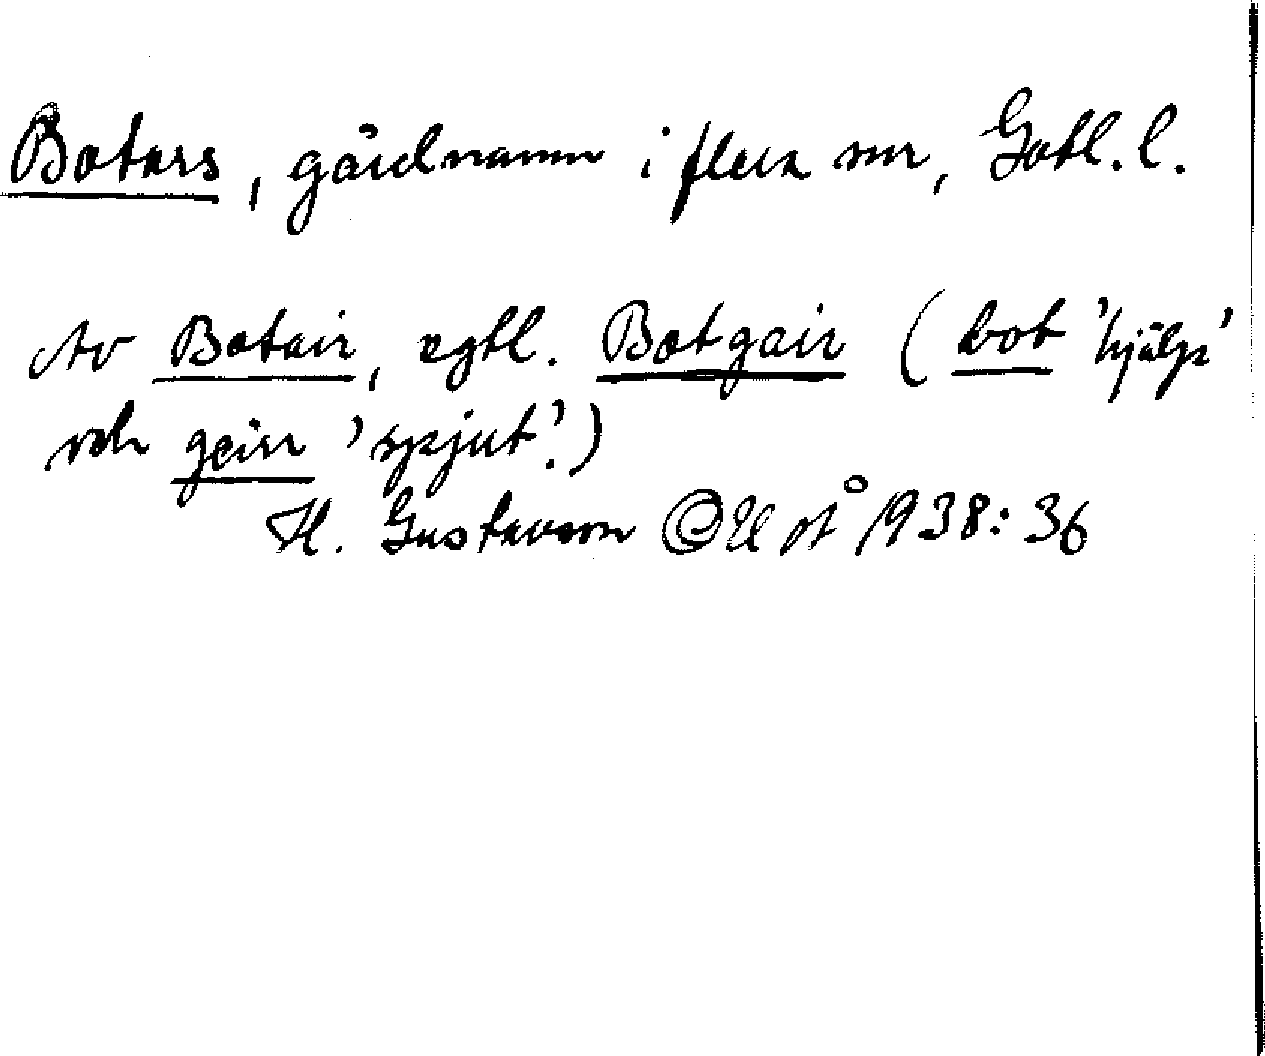 Boters, gårdnamn i flera snr, Gotl. l.
Av Botair, egtl. Botgair (bot 'hjälp'
och geirr 'spjut'.)
H. Gustavson GUOÅ 1938: 36